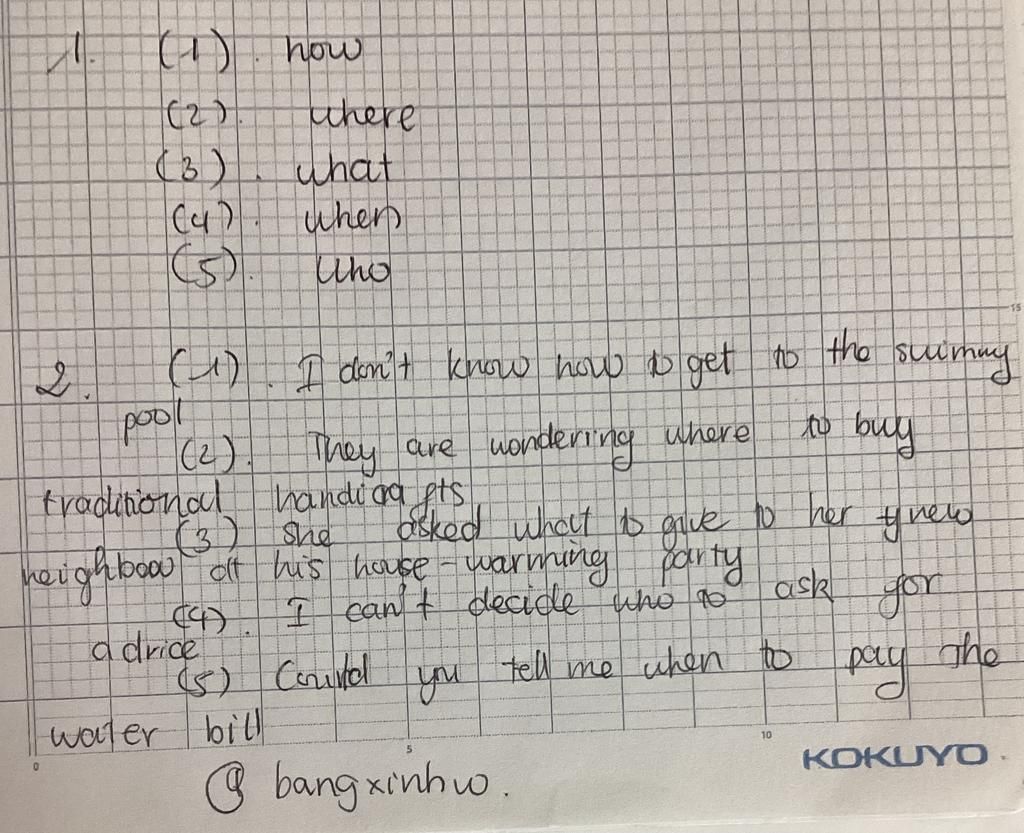 1. (1). how
(2). where
(3). what
(4). when
(5). who
15
2. (1). I don't know how to get to the swimmy
pool
(2). They are wondering where to buy
traditional
(3) She asked what to give to her new
at his house-warming party
(4). I can't decide who to ask for
advice
(5) Could you tell me when to pay the
water bill
0 5 10
KOKUYO
@ bangxinhuo.